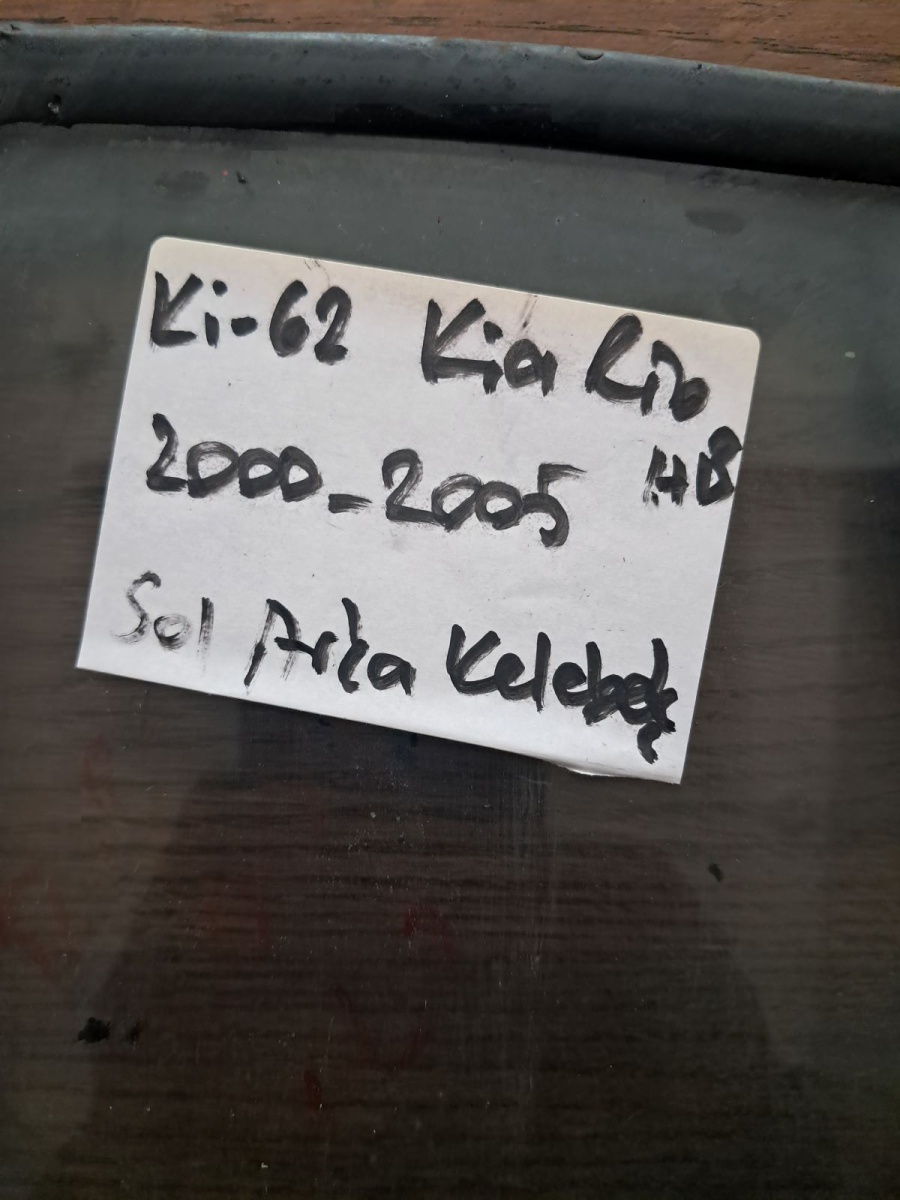 Ki-62 Kia Rio
2000-2005 HB
Sol Arka Kelebek